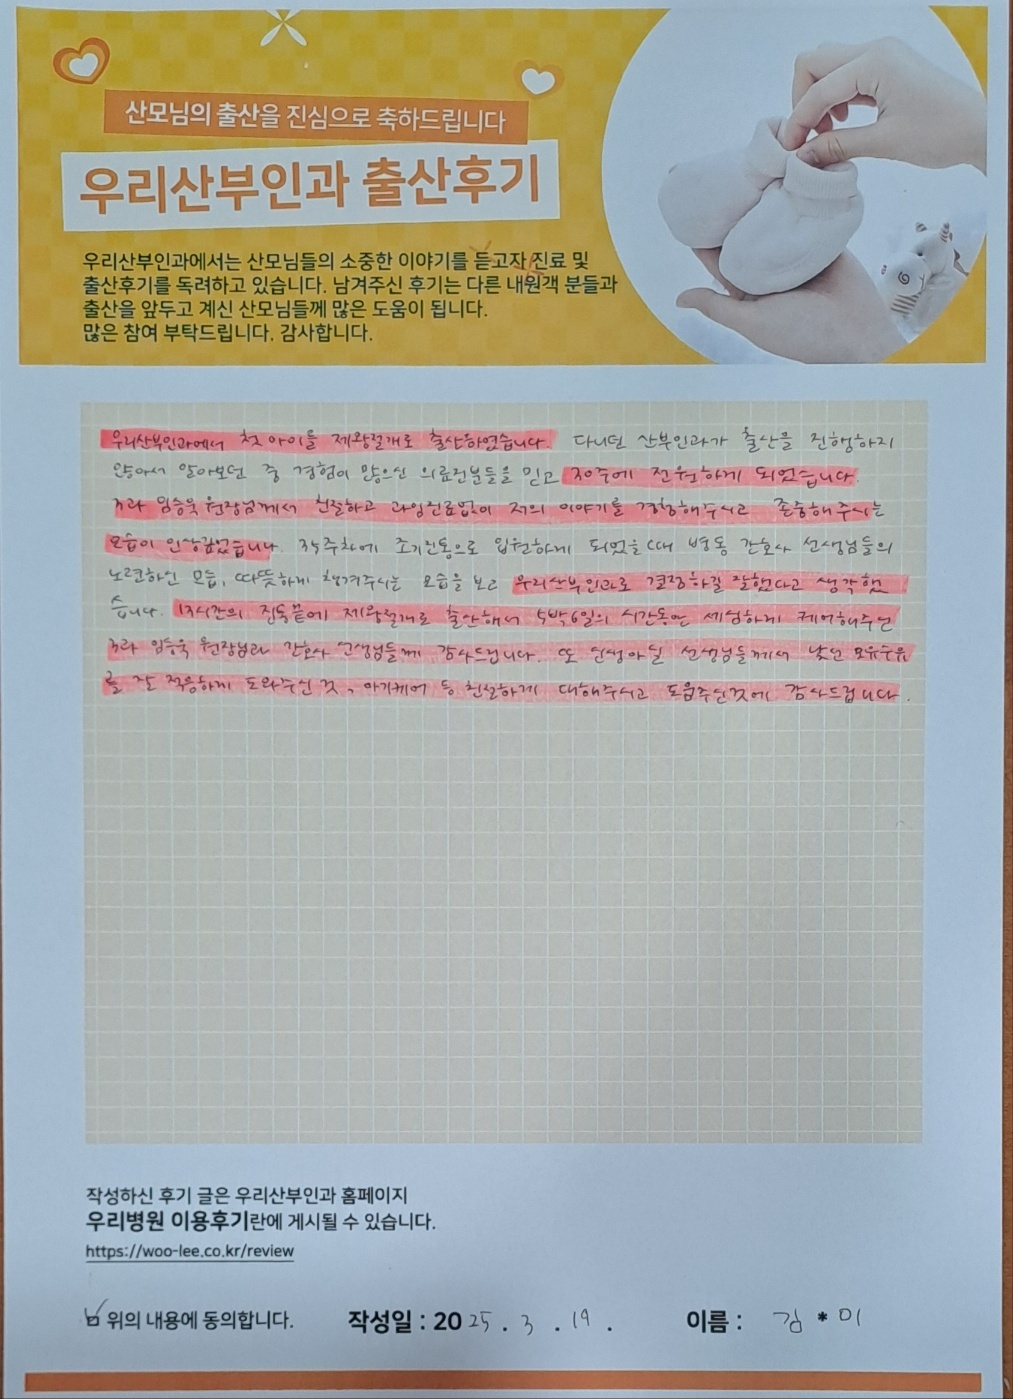 산모님의 출산을 진심으로 축하드립니다
우리산부인과 출산후기
우리산부인과에서는 산모님들의 소중한 이야기를 듣고자 진료 및
출산후기를 독려하고 있습니다. 남겨주신 후기는 다른 내원객 분들과
출산을 앞두고 계신 산모님들께 많은 도움이 됩니다.
많은 참여 부탁드립니다. 감사합니다.
우리산부인과에서 첫 아이를 제왕절개로 출산하였습니다. 다니던 산부인과가 출산을 진행하지
않아서 알아보던 중 경험이 많으신 의료진분들을 믿고 30주에 전원하게 되었습니다.
3과 임승욱 원장님께서 친절하고 과잉진료없이 저의 이야기를 경청해주시고 존중해주시는
모습이 인상깊었습니다. 35주차에 조기진통으로 입원하게 되었을때 병동 간호사 선생님들의
노련하신 모습, 따뜻하게 챙겨주시는 모습을 보고 우리산부인과로 결정하길 잘했다고 생각했
습니다. 13시간의 진통끝에 제왕절개로 출산해서 5박6일의 시간동안 세심하게 케어해주신
3과 임승욱 원장님과 간호사 선생님들께 감사드립니다. 또 신생아실 선생님들께서 낯선 모유수유
를 잘 적응하게 도와주신 것, 아기케어 등 친절하게 대해주시고 도움주신것에 감사드립니다.
작성하신 후기 글은 우리산부인과 홈페이지
우리병원 이용후기란에 게시될 수 있습니다.
https://woo-lee.co.kr/review
위의 내용에 동의합니다. 작성일 : 2025 . 3 . 19 . 이름 : 김 * 미